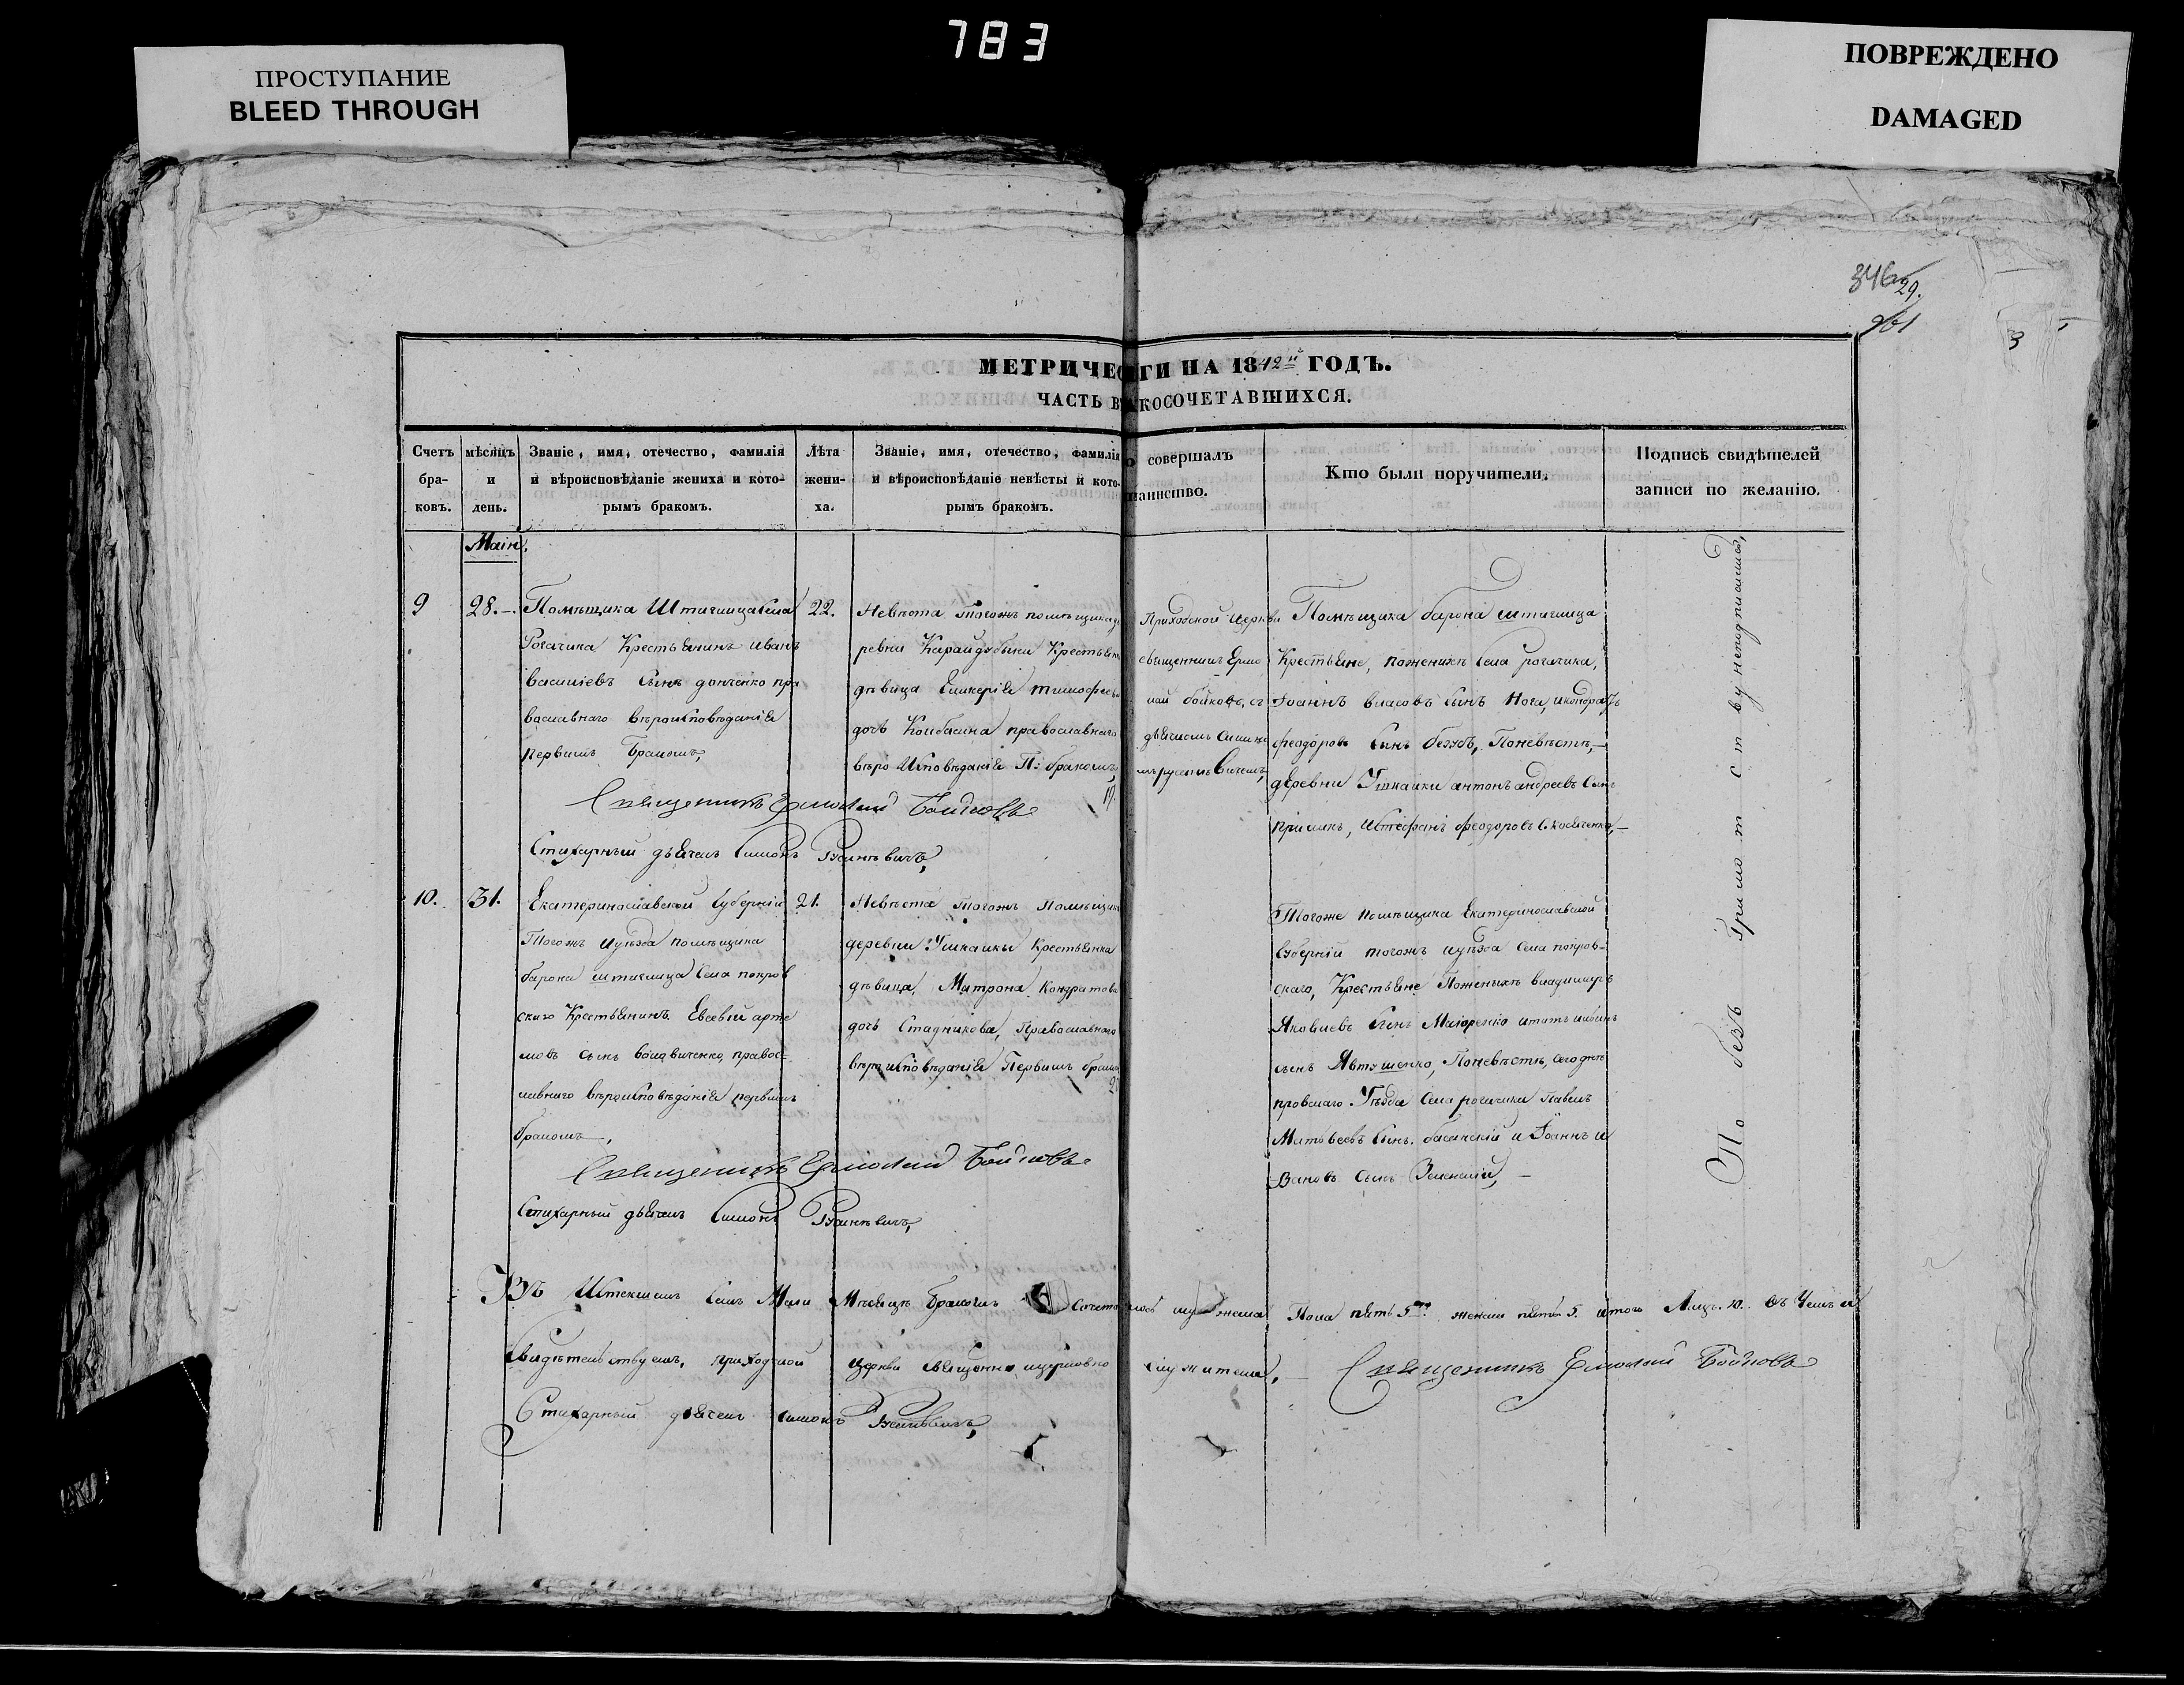 783
ПРОСТУПАНИЕ
BLEED THROUGH
ПОВРЕЖДЕНО
DAMAGED
346
29.
МЕТРИЧЕ ГИ НА 1842й ГОДЪ.
ЧАСТЬ В КОСОЧЕТАВШИХСЯ.
Счетъ бра-ковъ.
мѣсяцъ и день.
Званіе, имя, отечество, фамилія
и вѣроисповѣданіе жениха и кото-
рымъ бракомъ.
Лѣта жени-ха.
Званіе, имя, отечество, фамилія
и вѣроисповѣданіе невѣсты и кото-
рымъ бракомъ.
о совершалъ
таинство.
Кто были поручители.
Подпись свидѣтелей
записи по желанію.
Маія.
9
28.
Помѣщика Штиглица села
Рогачика Крестьянинъ Иванъ
васильевъ сынъ донченко пра
вославнаго вѣроисповѣданія
первымъ бракомъ,
22.
Невѣста тогожъ помѣщика де
ревни Карайдубыни Крестьянка
дѣвица Гликерія тимофеева
дочь Колбасина православнаго
вѣроисповѣданія П: бракомъ,
19.
Приходской церкви
священникъ Ермо
лай бойковъ, съ
дьячкомъ
Помѣщика барона штиглица
Крестьяне, поженихѣ села рогачика,
Іоаннъ власовъ сынъ Нога, икондратъ
феодоровъ сынъ беззубъ, Поневѣстѣ,
деревни Ушкалки антонъ андреевъ сынъ
феодоровъ
Священникъ Ермолай Бойковъ
Стихарный дьячекъ Симонъ
10.
31.
Екатеринославской губерніи
Тогожъ иуѣзда помѣщика
барона штиглица села покров
скаго Крестьянинъ Евсевій арте
мовъ сынъ правос-
лавнаго вѣроисповѣданія первымъ
бракомъ,
21.
Невѣста тогожъ помѣщика
деревни Ушкалки Крестьянка
дѣвица, Матрона Кондратова
дочь Стадникова, Православнаго
вѣроисповѣданія Первымъ бракомъ
Тогоже помѣщика Екатеринославской
губерніи тогожъ иуѣзда села покров-
скаго, Крестьяне Поженихѣ владимиръ
Яковлевъ сынъ
сынъ Явтушенко, Поневѣстѣ,
провскаго Уѣзда села рогачика Павелъ
Матвеевъ сынъ и Іоаннъ и
вановъ сынъ Зеленскій,
Священникъ Ермолай Бойковъ
Стихарный дьячекъ Симонъ
По безъ Грамот ст ву неподписались,
Мѣсяцѣ бракомъ Сочет лось му жеска Пола пять 5ть. женска пять 5. итого Лицъ. 10. Въ Чемъ и
Свидѣтельствуемъ, приходской церкви священно ицерковно служители,
Священникъ Ермолай Бойковъ
Стихарный дьячекъ Симонъ